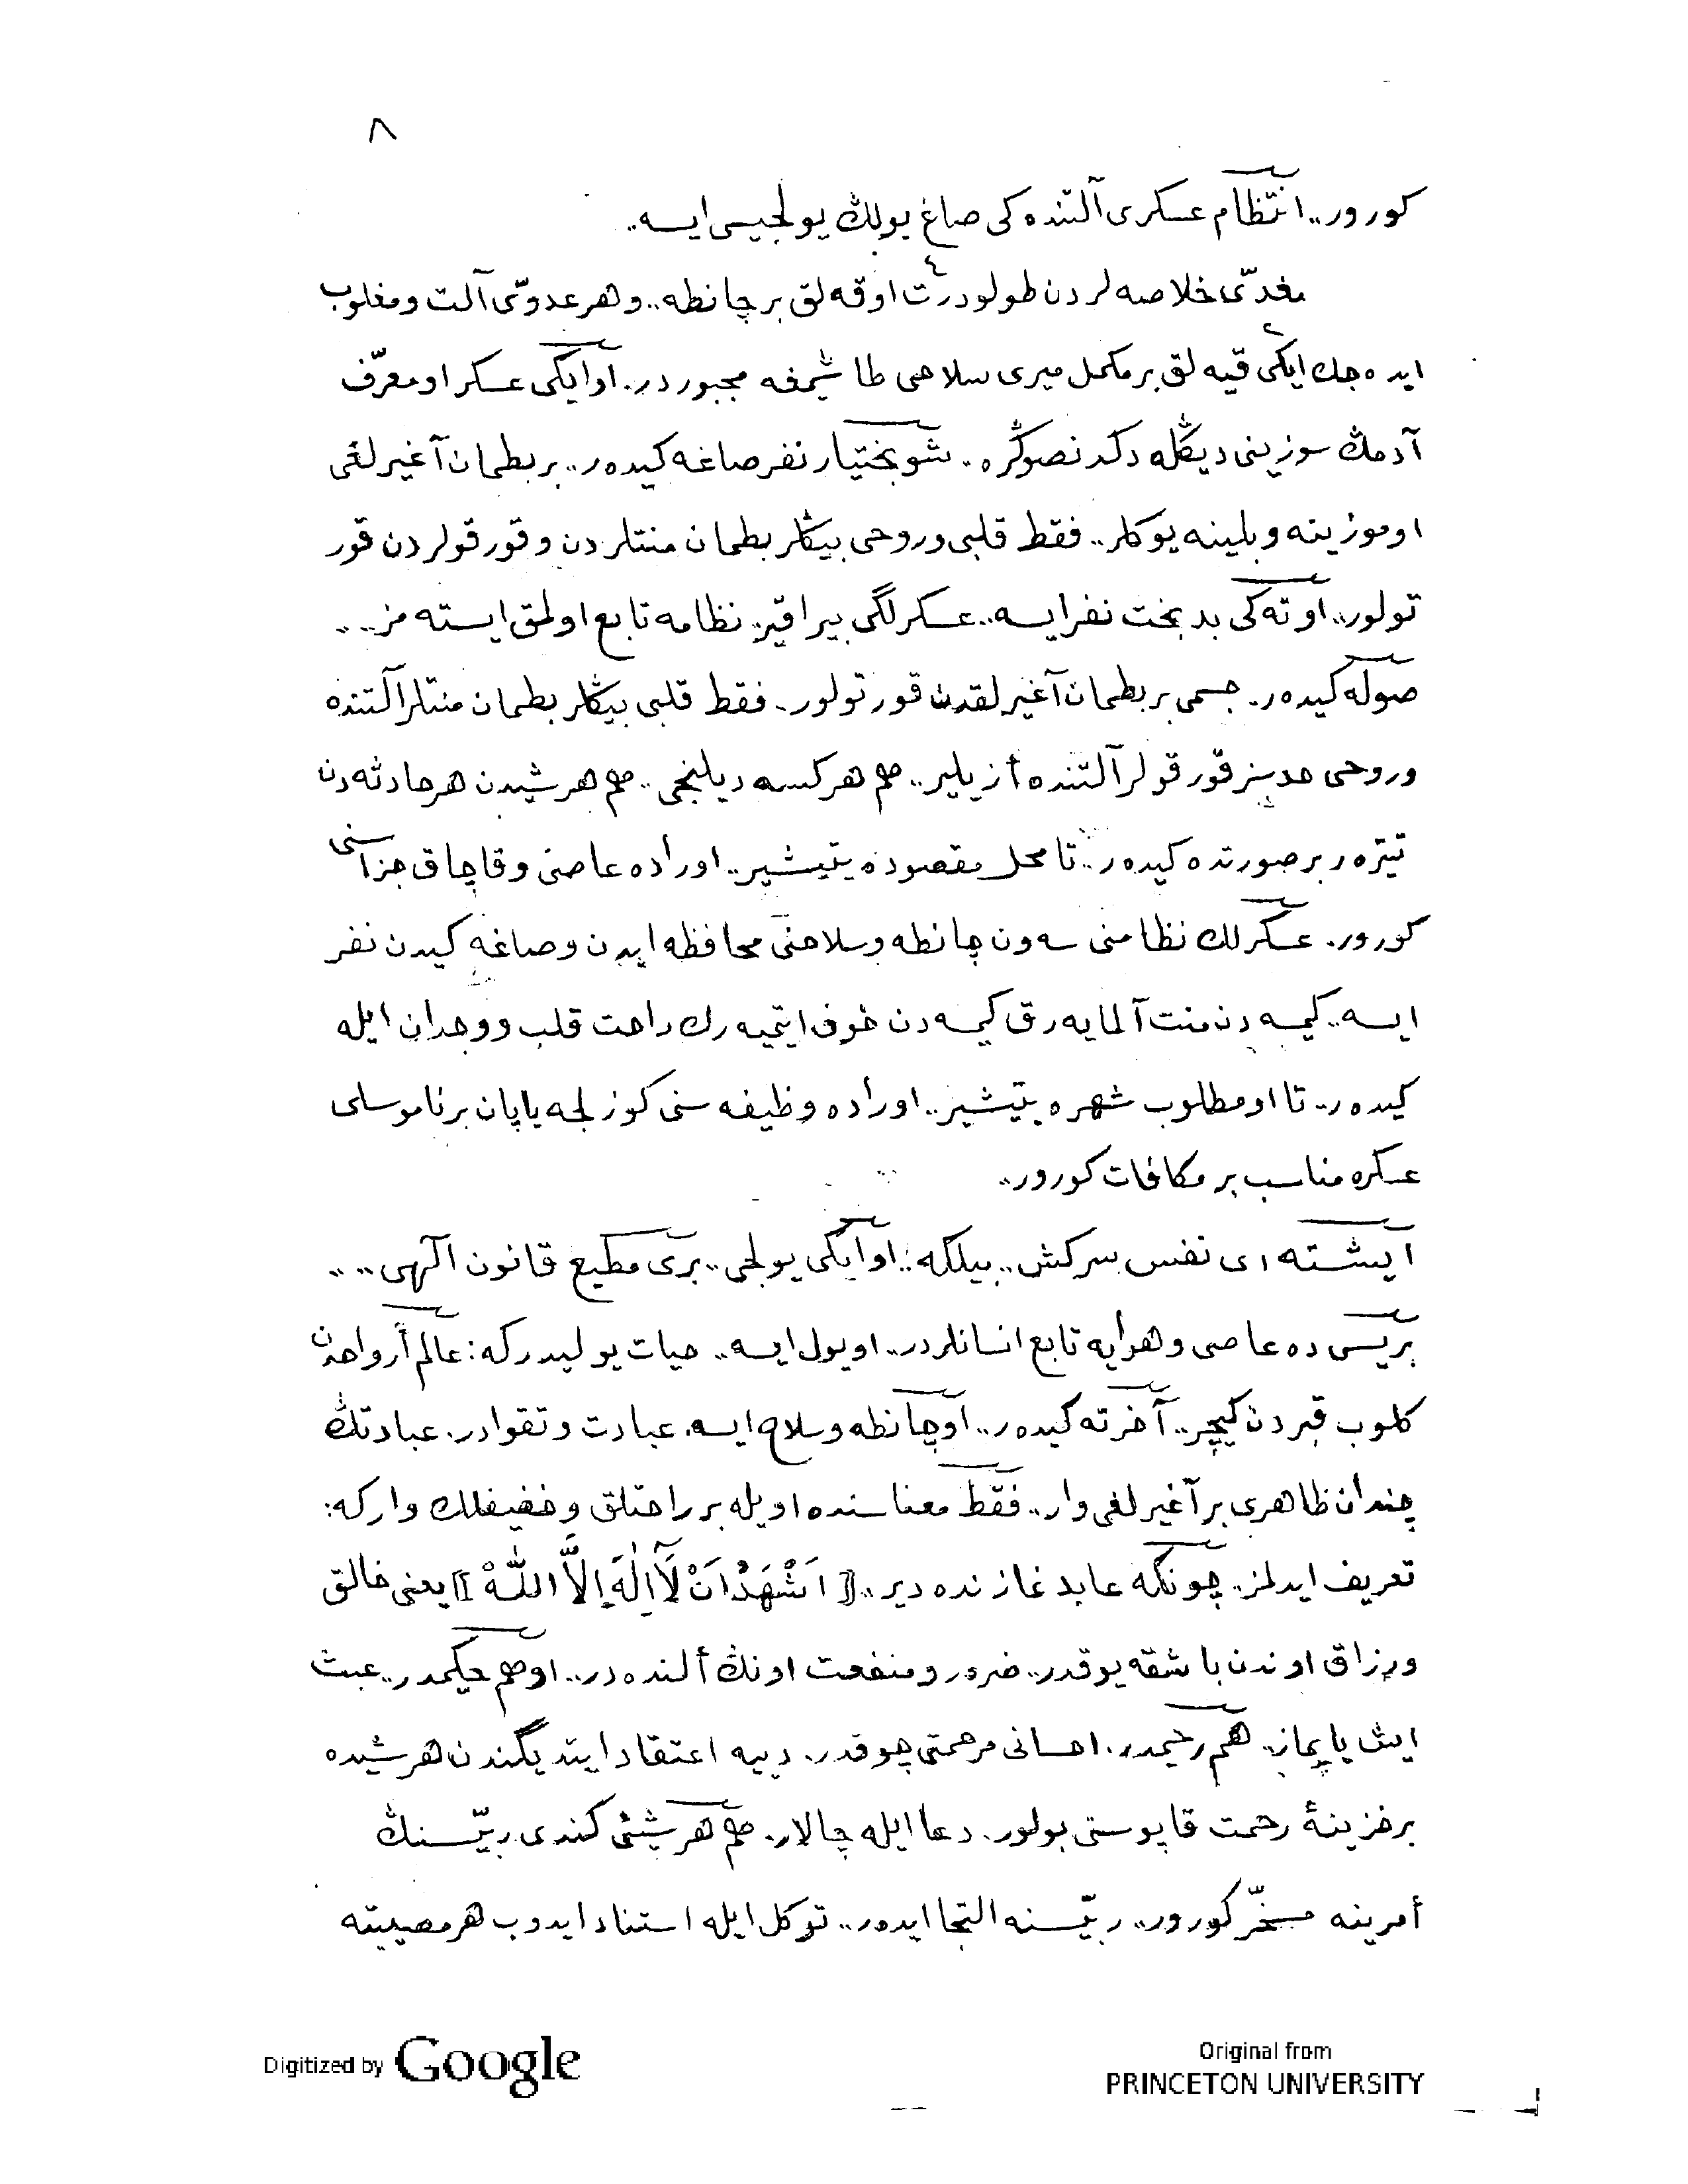 ٨
كورور.. انتظام عسكرى آلتنده كى صاغ يولك يولجيسى ايسه..
مغدّى خلاصه لردن طولو درت ٤ اوقه لق بر چانطه.. و هر عدوّى آلت و مغلوب
ايده جك ايكى ٢ قيه لق بر مكمل ميرى سلاحى طاشيمغه مجبوردر. او ايكى عسكر او معرّف
آدمڭ سوزينى ديڭله دكدنصوڭره. شو بختيار نفر صاغه كيده ر.. بر بطمان آغيرلغى
اوموزينه و بلينه يوكلر.. فقط قلبى و روحى بيڭلر بطمان منتلردن و قورقولردن قور
تولور.. اوته كى بدبخت نفر ايسه.. عسكرلگى بيراقير. نظامه تابع اولمق ايسته مز...
صوله كيده ر. جسمى بر بطمان آغيرلقدن قورتولور. فقط قلبى بيڭلر بطمان منتلر آلتنده
و روحى حدسز قورقولر آلتنده أزيلير.. هم هركسه ديلنجى.. هم هر شيدن هر حادثه دن
تيتره ر بر صورتده كيده ر.. تا محل مقصوده يتيشير.. اوراده عاصى و قاچاق جزاسنى
كورور. عسكرلك نظامنى سه ون چانطه و سلاحنى محافظه ايدن و صاغه كيدن نفر
ايسه.. كيمسه دن منت آلمايه رق كيمسه دن خوف ايتميه رك راحت قلب و وجدان ايله
كيده ر.. تا او مطلوب شهره يتيشير.. اوراده وظيفه سنى كوزلجه ياپان برناموسلى
عسكره مناسب بر مكافات كورور..
ايشته اى نفس سركش.. بيلكه: او ايكى يولجى.. برى مطيع قانون الٓهى...
بريسى ده عاصى و هوايه تابع انسانلردر.. او يول ايسه.. حيات يوليدركه: عالم أرواحدن
كلوب قبردن كيچر.. آخرته كيده ر.. او چانطه و سلاح ايسه. عبادت و تقوادر. عبادتڭ
چندان ظاهرى بر آغيرلغى وار.. فقط معناسنده اويله بر راحتلق و خفيفلك واركه:
تعريف ايدلمز. چونكه عابد نمازنده دير.. ⟦ اَشْهَدُ اَنْ لَٓا اِلٰهَ اِلاَّ اللّٰهْ ⟧ يعنى خالق
و رزاق اوندن باشقه يوقدر. ضرر و منفعت اونڭ ألنده در.. او هم حكيمدر.. عبث
ايش ياپماز. هم رحيمدر. احسانى مرحمتى چوقدر. دييه اعتقاد ايتديگندن هر شيده
بر خزينۀ رحمت قاپوسنى بولور. دعا ايله چالار. هم هر شيئى كندى ربّسنڭ
أمرينه مسخّر كورور.. ربّسنه التجا ايده ر.. توكل ايله استناد ايدوب هر مصيبته
Digitized by Google
Original from
PRINCETON UNIVERSITY